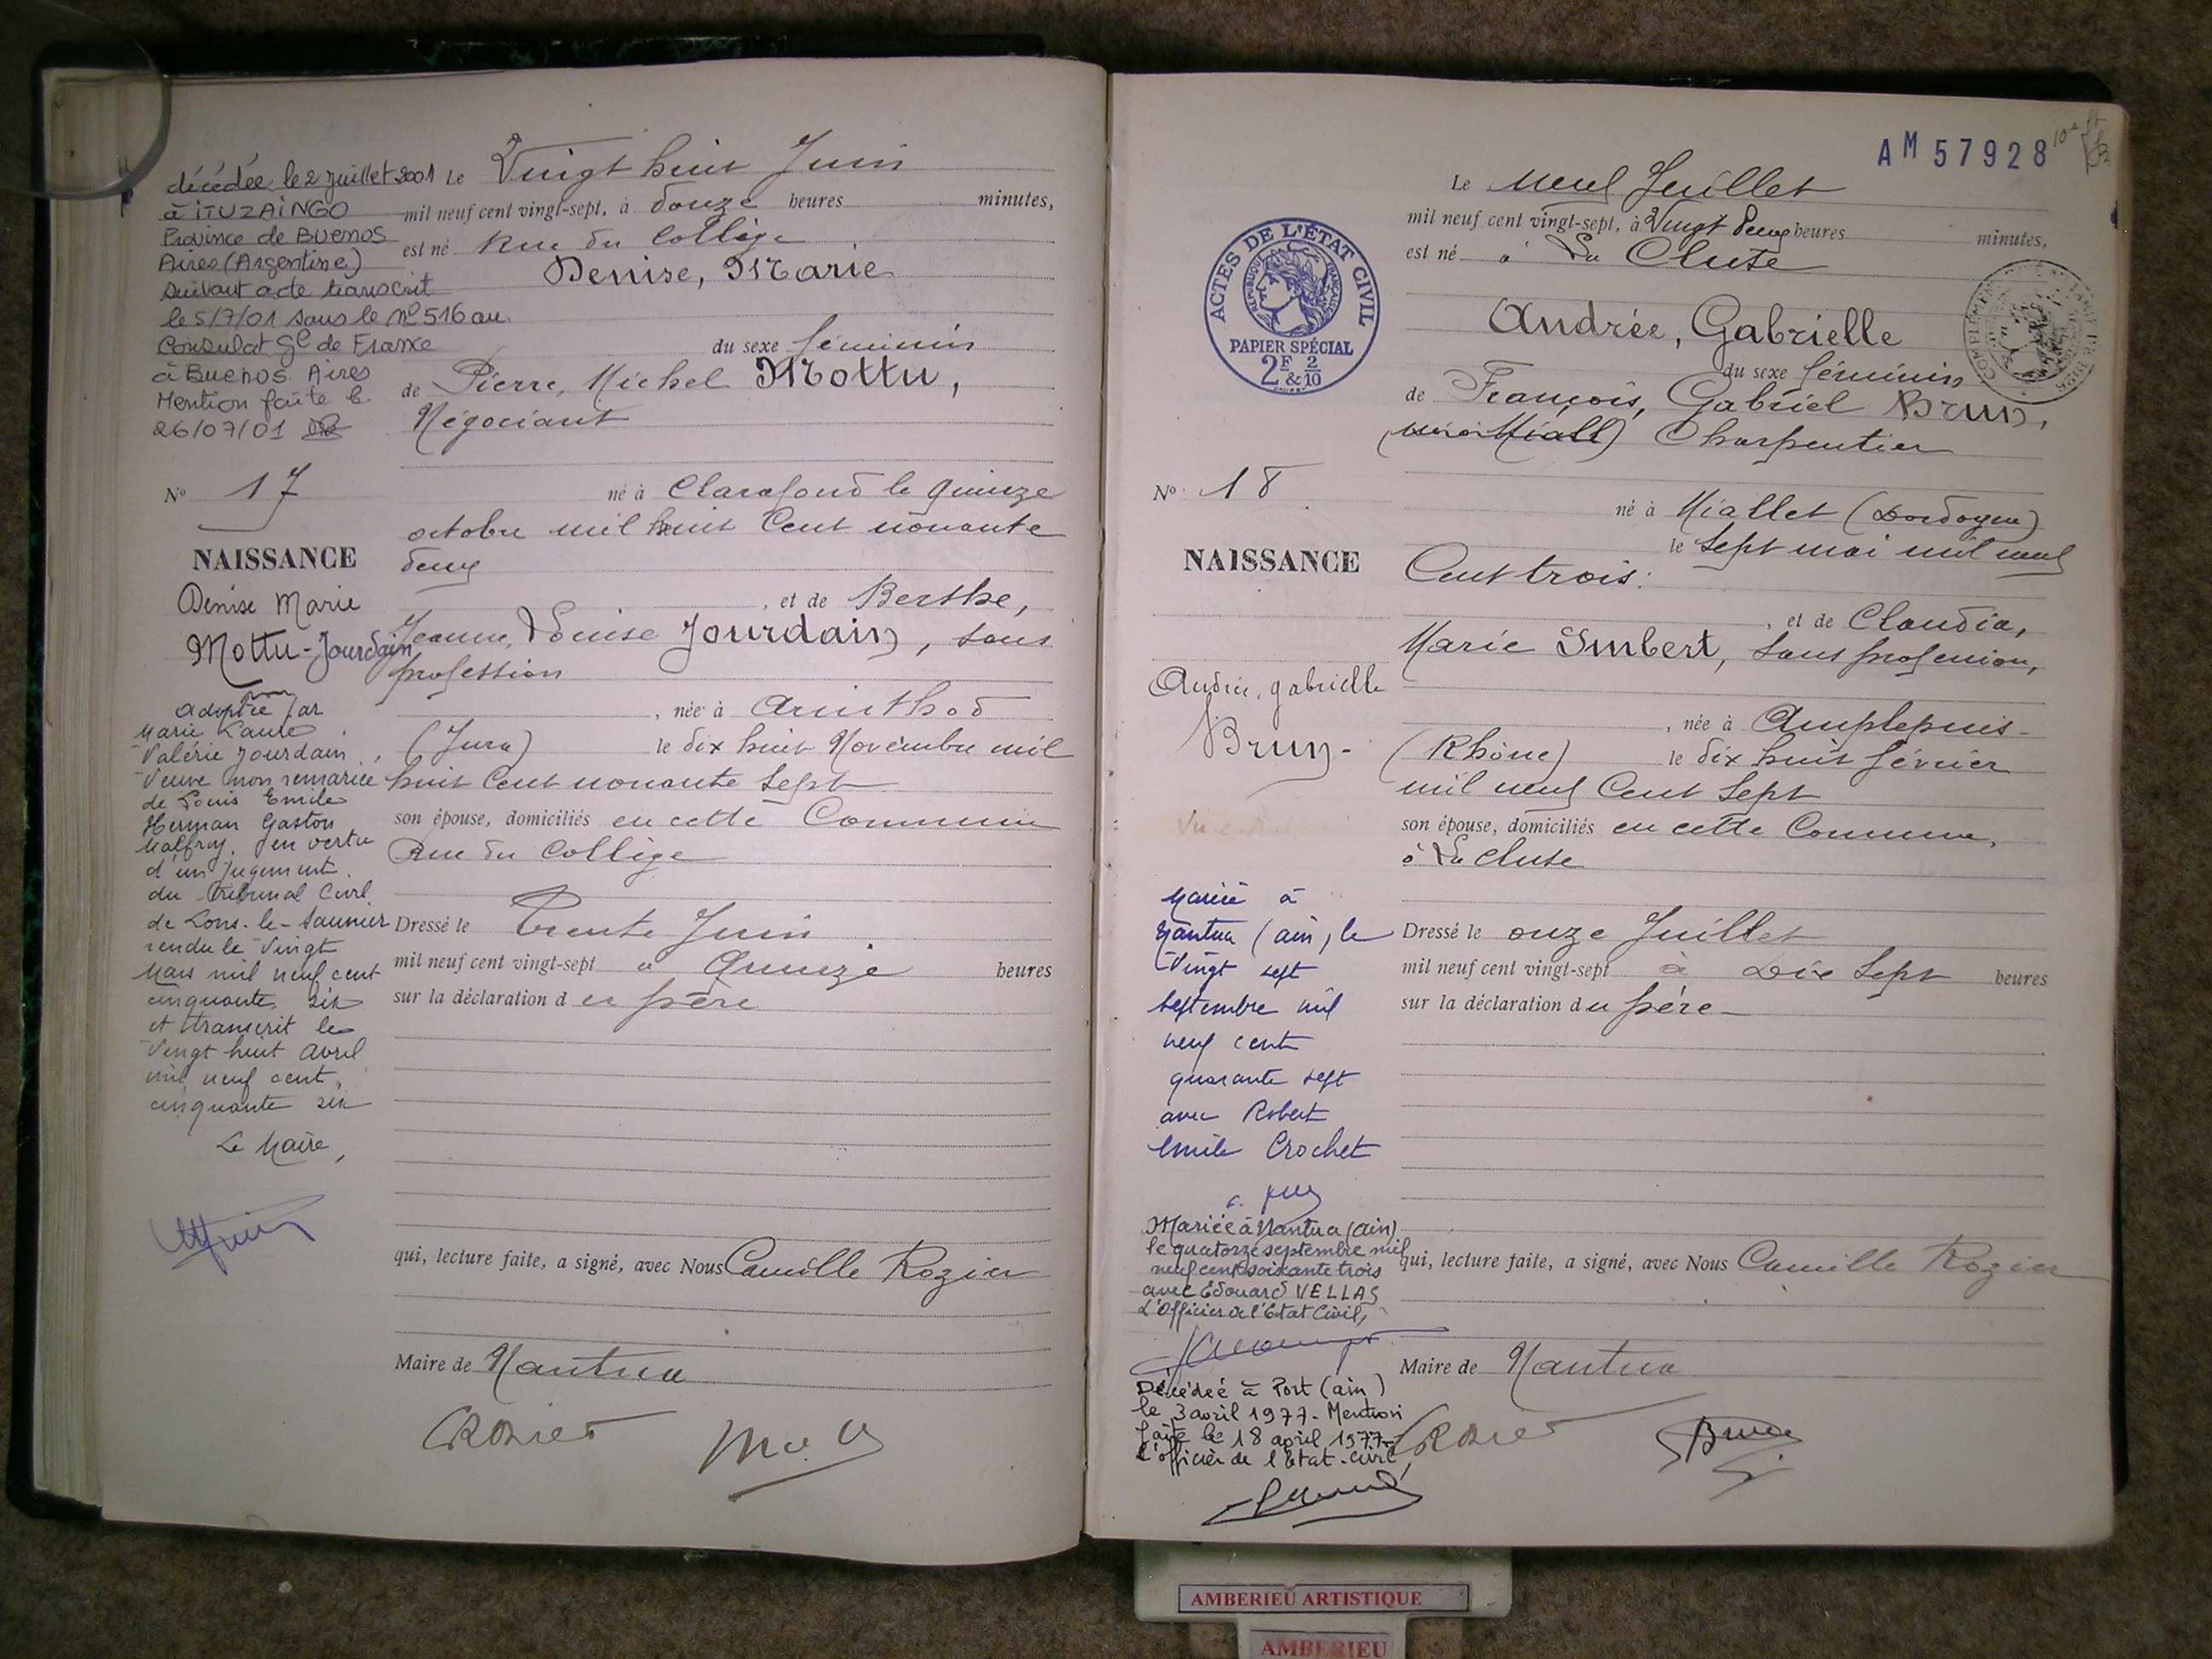 décédée le 2 Juillet 2001
à ITUZAINGO
Province de Buenos
Aires (Argentine)
suivant acte transcrit
le 5/7/01 sous le n° 516 au
Consulat Gl de France
à Buenos Aires
Mention faite le
26/07/01
N° 17
NAISSANCE
Denise Marie
Mottu-Jourdain
Adoptée par
Marie Laure
Valérie Jourdain
Veuve non remariée
de Louis Emile
Herman Gaston
Malfroy, en vertu
d'un jugement
du Tribunal Civil
de Lons-le-Saunier
rendu le vingt
Mars mil neuf cent
cinquante six
et transcrit le
vingt huit avril
mil neuf cent
cinquante six
Le Maire,
Le Vingt huit Juin
mil neuf cent vingt-sept, à douze heures minutes,
est né Rue du Collège
Denise, Marie
du sexe féminin
de Pierre, Michel Mottu,
Négociant
né à Clarafond le quinze
octobre mil huit Cent nonante
deux
, et de Berthe,
Jeanne, Louise Jourdain, sans
profession
, née à Arinthod
(Jura) le dix huit Novembre mil
huit Cent nonante Sept
son épouse, domiciliés en cette Commune
Rue du Collège
Dressé le Trente Juin
mil neuf cent vingt-sept à Quinze heures
sur la déclaration du père
qui, lecture faite, a signé, avec Nous Camille Rozier
Maire de Nantua
CRozier
AM 57928
ACTES DE L'ÉTAT CIVIL
RÉPUBLIQUE FRANÇAISE
PAPIER SPÉCIAL
2F & 2/10
N° 18
NAISSANCE
Andrée, gabrielle
Brun-
Mariée à
Nantua (ain), le
Vingt sept
septembre mil
neuf cent
quarante sept
avec Robert
Emile Crochet
Mariée à Nantua (Ain)
le quatorze septembre mil
neuf cent soixante trois
avec Edouard VELLAS
L'Officier de l'Etat Civil,
Décédée à Port (ain)
le 3 avril 1977 - Mention
faite le 18 april 1977
L'officier de l'Etat-Civil,
Le neuf Juillet
mil neuf cent vingt-sept, à Vingt deux heures minutes,
est né à La Cluse
Andrée, Gabrielle
du sexe féminin
de François, Gabriel Brun,
Charpentier
né à Miallet (Dordogne)
le sept mai mil neuf
Cent trois.
, et de Claudia,
Marie Imbert, Sans profession,
, née à Amplepuis-
(Rhône) le dix huit février
mil neuf Cent Sept
son épouse, domiciliés en cette Commune,
à La Cluse
Dressé le onze Juillet
mil neuf cent vingt-sept à Dix Sept heures
sur la déclaration du père-
qui, lecture faite, a signé, avec Nous Camille Rozier
Maire de Nantua
CRozier
Brun
AMBERIEU ARTISTIQUE
AMBERIEU